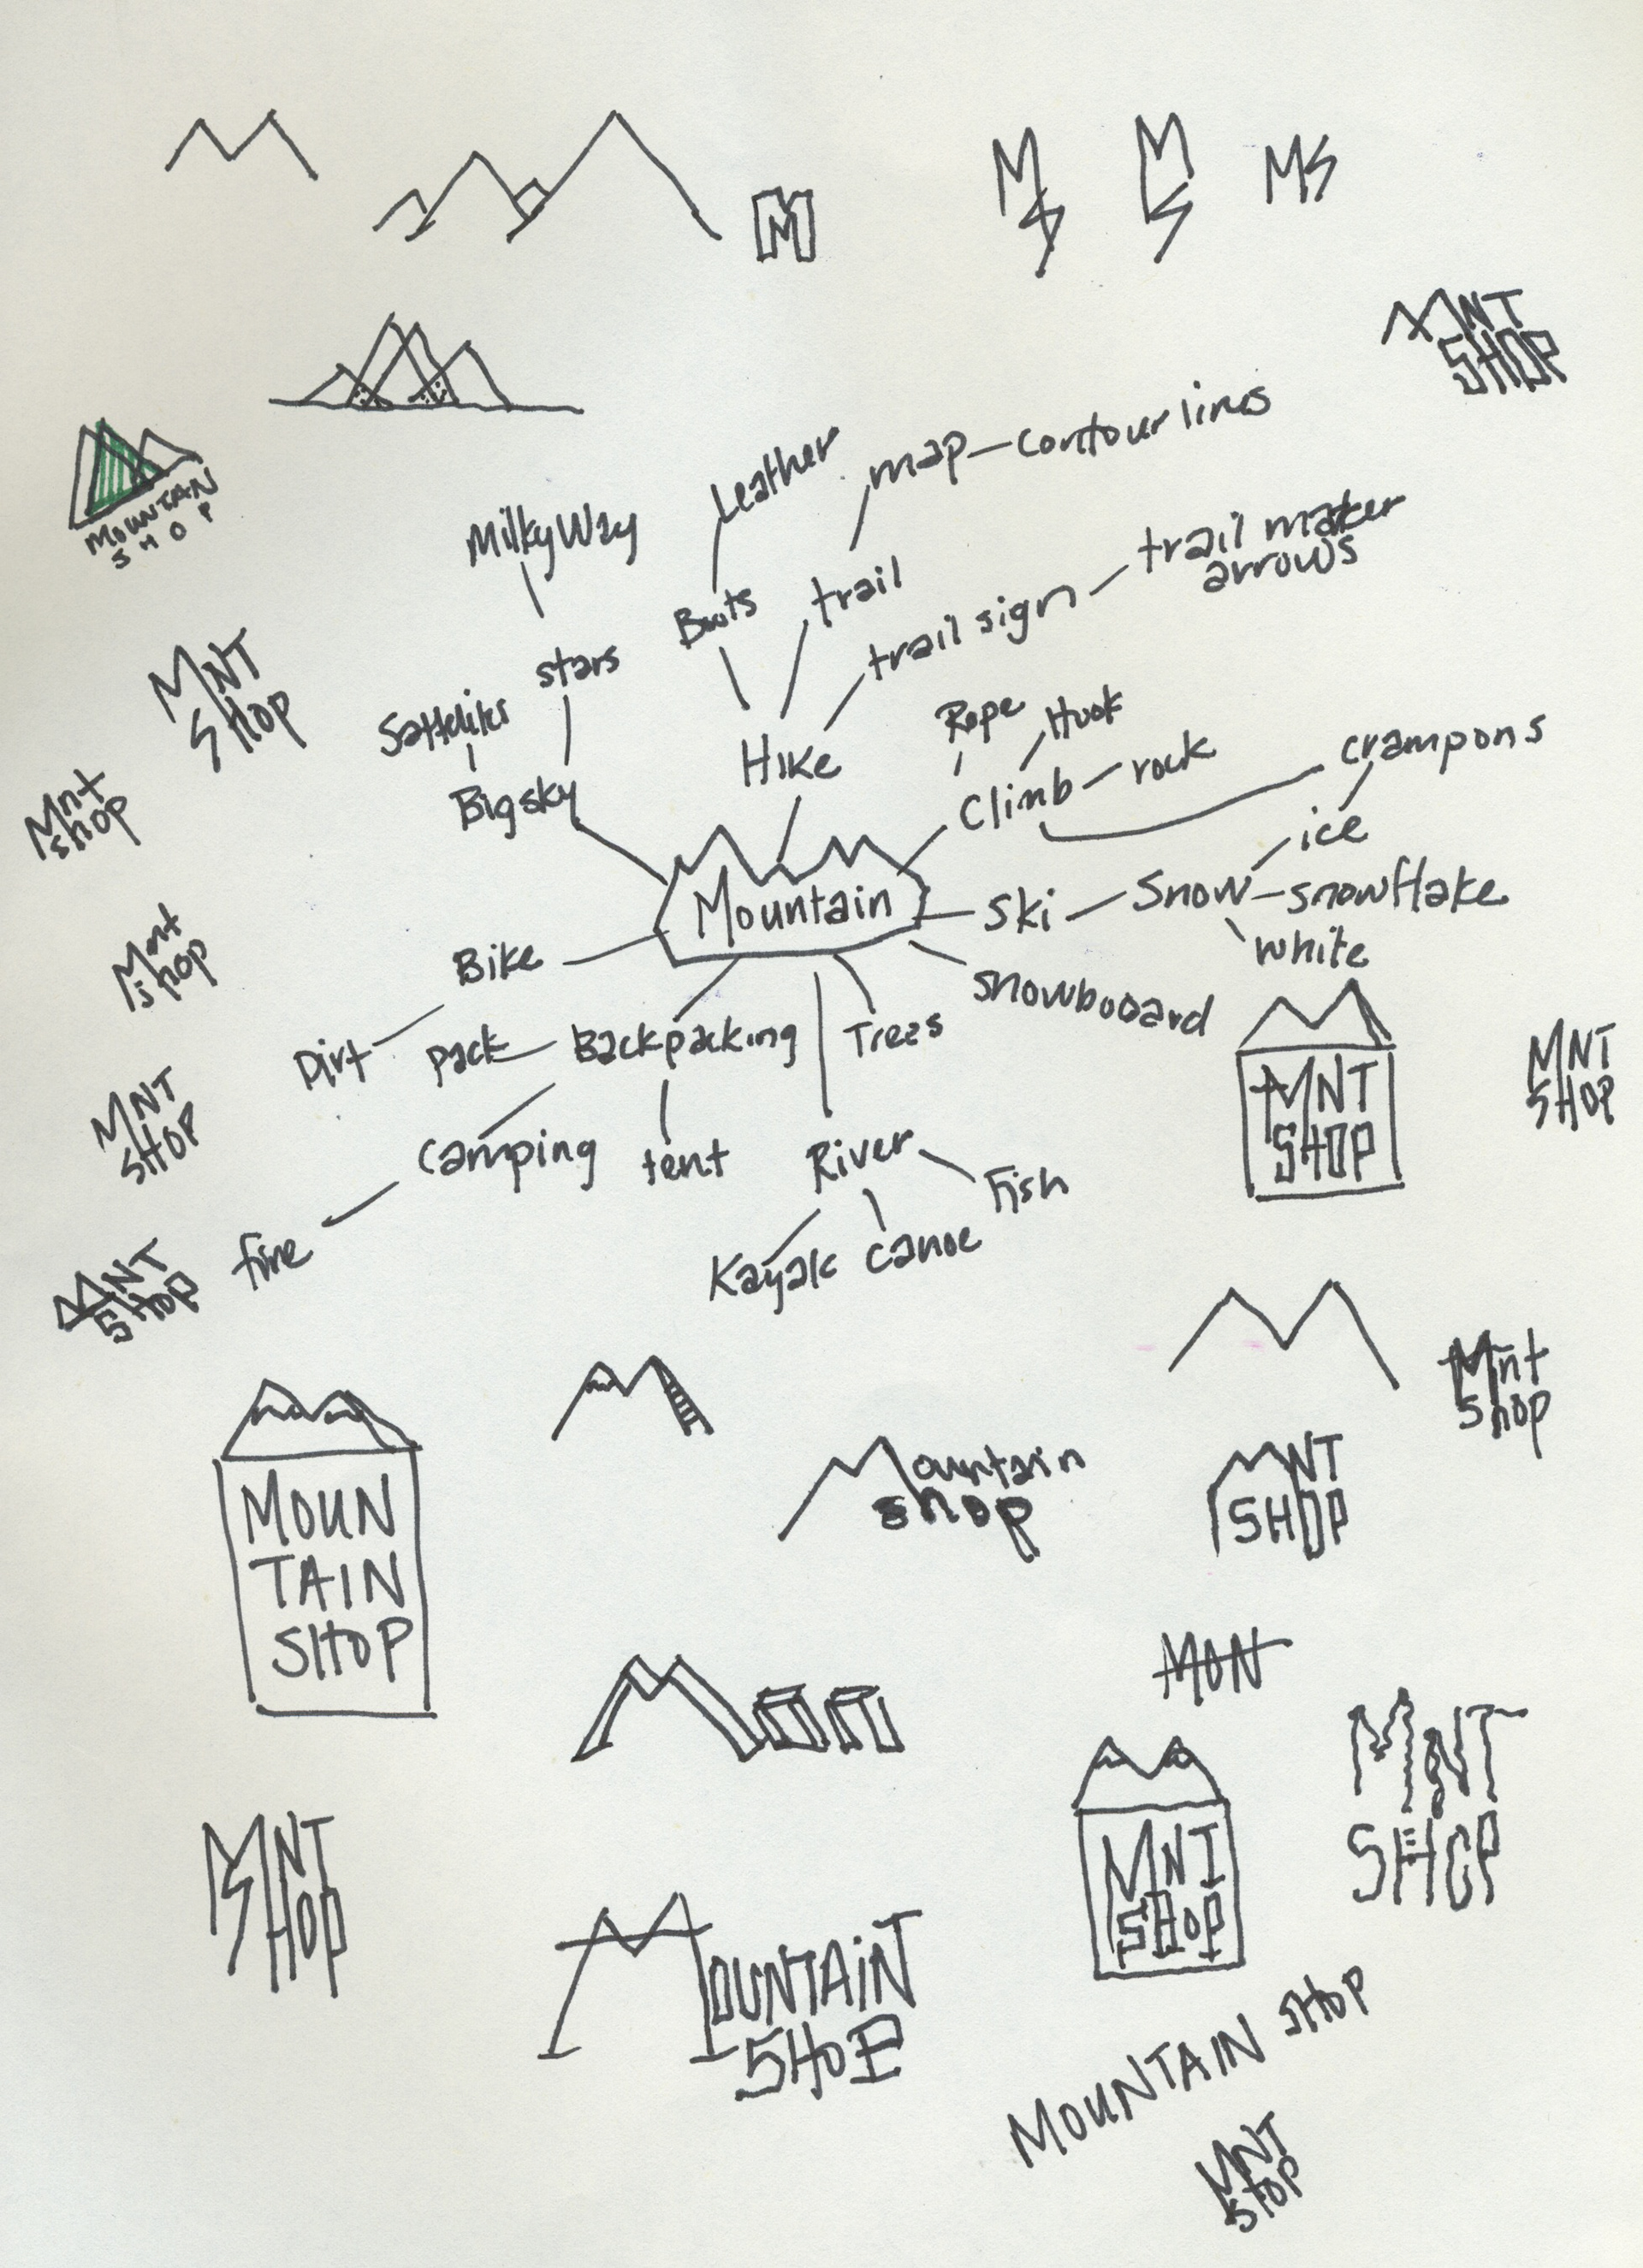 M
M
S
M
S
MS
MNT
SHOP
MOUNTAIN
SHOP
Leather
map
contour lines
Milky Way
trail maker
arrows
Boots
trail
trail sign
MNT
SHOP
stars
Satteliks
Rope
Hook
crampons
Big sky
HIKE
Climb
rock
ice
Mnt
shop
Mountain
Ski
Snow
snowflake
white
Mnt
shop
Bike
snowbooard
Dirt
pack
Backpacking
Trees
MNT
SHOP
MNT
SHOP
MNT
SHOP
camping
tent
River
Fish
MNT
SHOP
fire
Kayak
canoe
Mnt
Shop
MOUN
TAIN
SHOP
Mountain
shop
MNT
SHOP
MON
MNT
SHOP
MNT
SHOP
MNT
SHOP
MOUNTAIN
SHOP
MOUNTAIN SHOP
MNT
SHOP